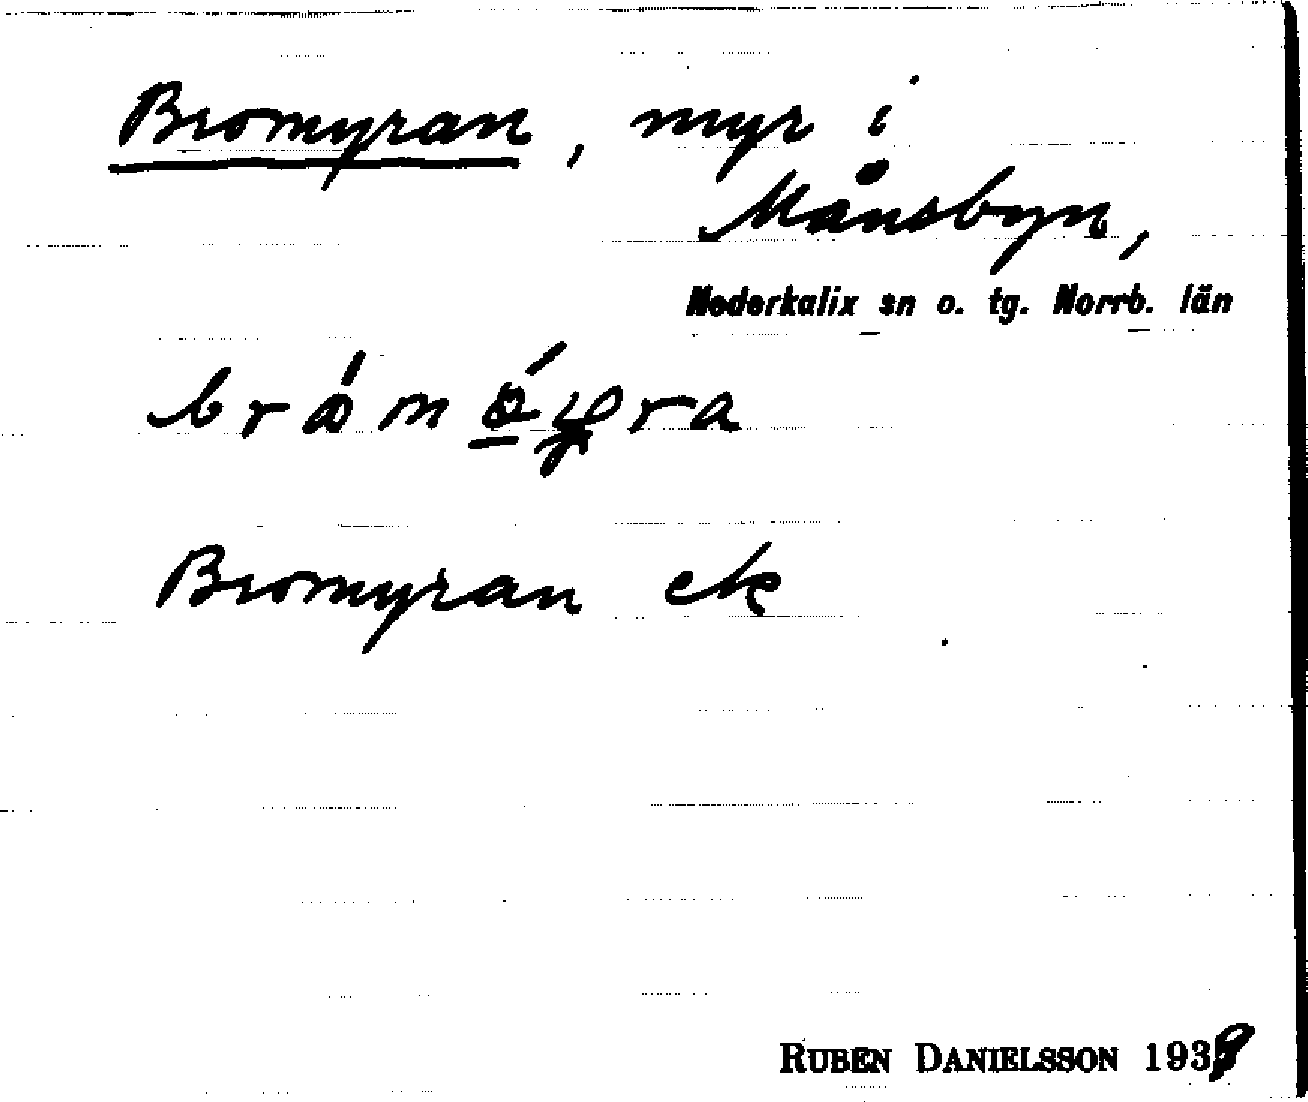 Bromyran, myr i
Månsbyn,
Nederkalix sn o. tg. Norrb. län
Bromyran ek
RUBEN DANIELSSON 1939